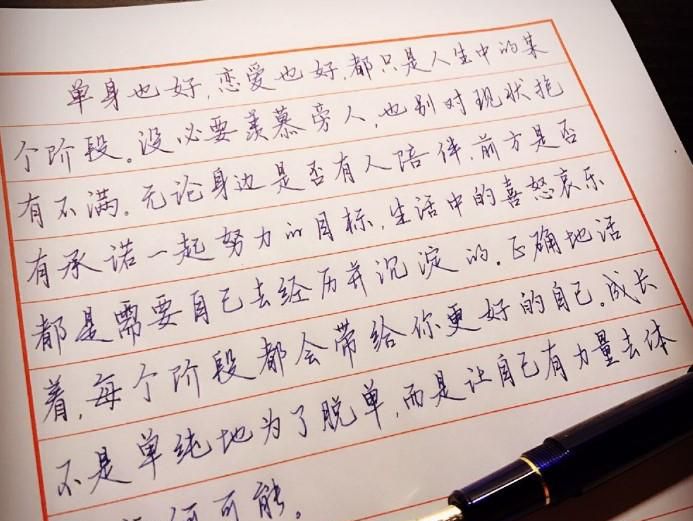 单身也好,恋爱也好,都只是人生中的某
个阶段。没必要羡慕旁人,也别对现状抱
有不满。无论身边是否有人陪伴,前方是否
有承诺一起努力的目标,生活中的喜怒哀乐
都是需要自己去经历并沉淀的。正确地活
着,每个阶段都会带给你更好的自己。成长
不是单纯地为了脱单,而是让自己有力量去体
何可能。